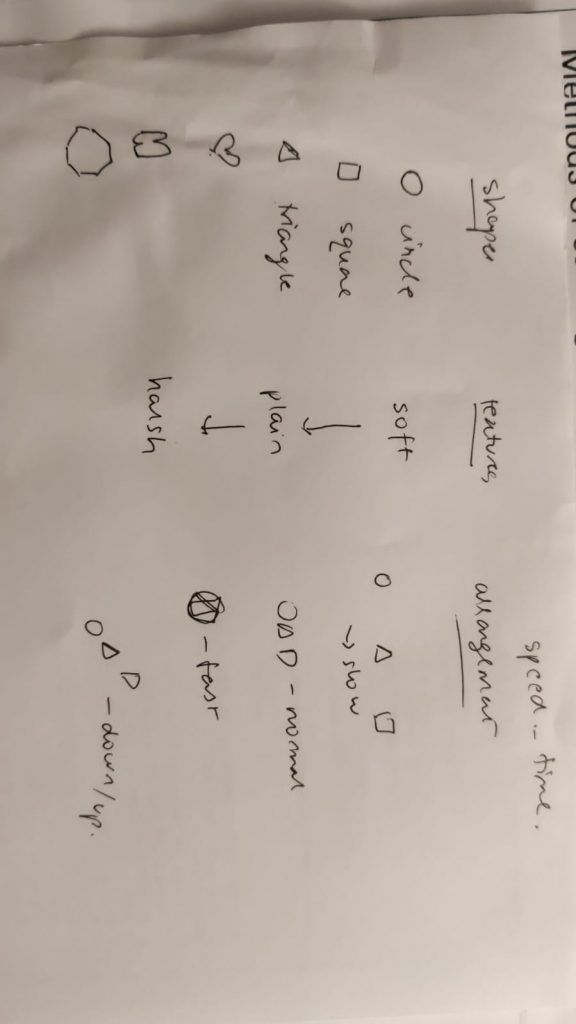 Methods of
speed - time.
shapes textures arrangement
circle soft
square → slow
triangle plain - normal
- fast
harsh
- down/up.